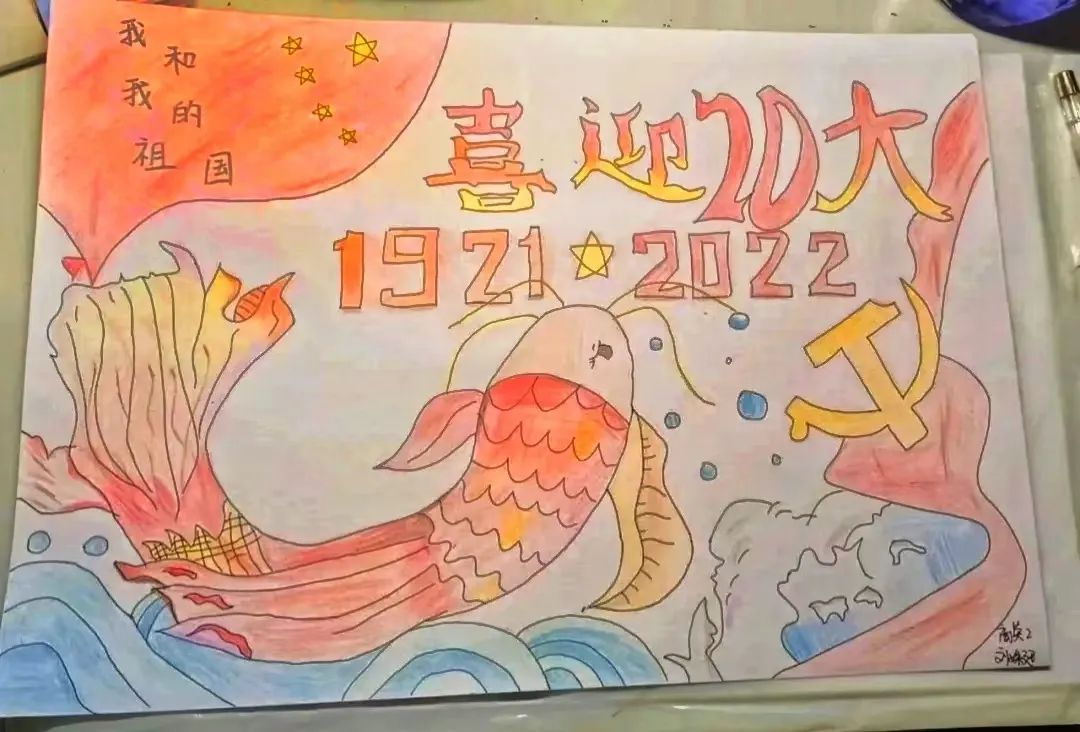 我和我的祖国
喜迎20大
1921 2022